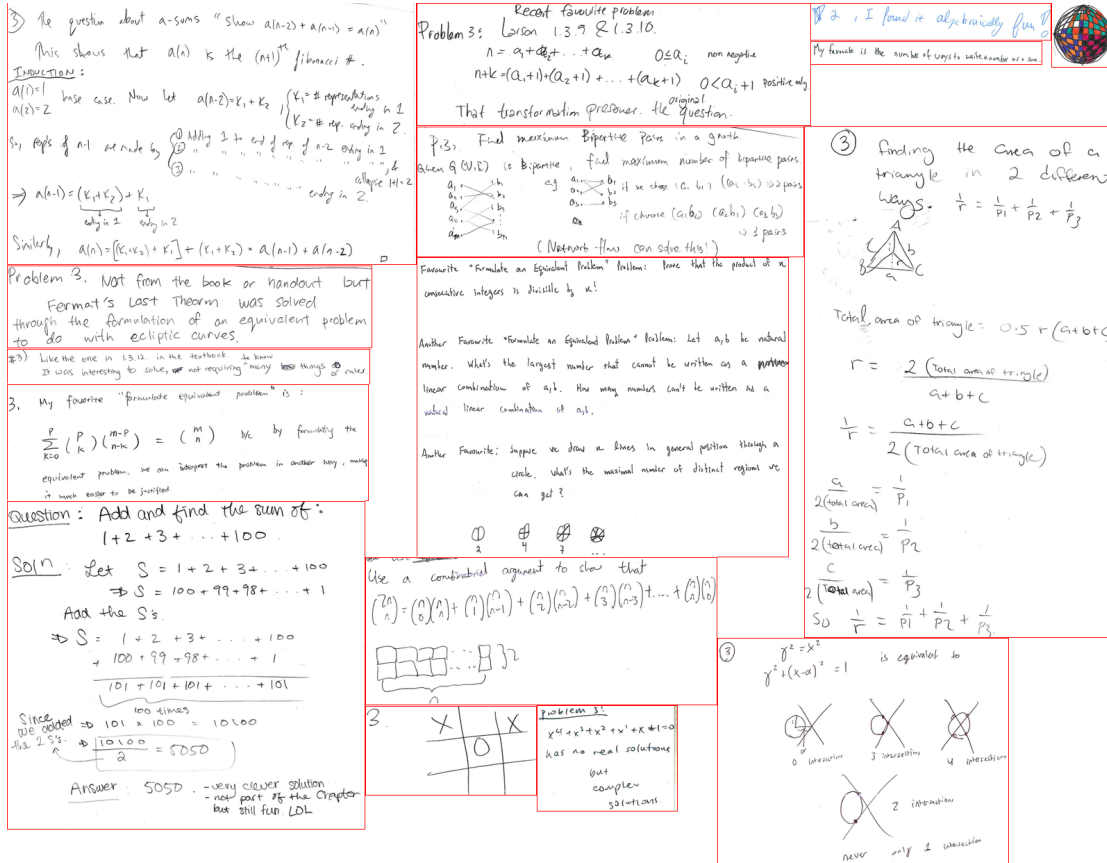 3) The question about a-sums "show a(n-2) + a(n-1) = a(n)"
This shows that a(n) is the (n+1)th fibonacci #.
INDUCTION:
a(1)=1
a(2)=2
base case. Now let a(n-2)=K1+K2,
{K1 = # representations ending in 1
K2 = # rep. ending in 2.
So, rep's of n-1 are made by
① Adding 1 to end of rep of n-2 ending in 1
② " " " " " " " " 2
③ " " " " " " " , &
collapse 1+1=2
ending in 2.
⇒ a(n-1) = (K1+K2) + K1
ending in 1 ending in 2
Similarly, a(n) = [(K1+K2)+K1] + (K1+K2) = a(n-1) + a(n-2)
Problem 3. Not from the book or handout but
Fermat's Last Theorm was solved
through the formulation of an equivalent problem
to do with ecliptic curves.
#3) Like the one in 1.3.12. in the textbook.
It was interesting to solve, not requiring to know many things or rules.
3. My favorite "formulate equivalent problem" is :
p∑k=0 (p k)(m-p n-k) = (m n) b/c by formulating the
equivalent problem, we can interpret the problem in another way, making
it much easier to be justified
Question: Add and find the sum of:
1+2+3+ . . . +100
Soln: Let S = 1+2+3+ . . . +100
⇒ S = 100+99+98+ . . . + 1
Add the S's.
⇒ S = 1 + 2 + 3 + . . . . + 100
+ 100 + 99 + 98 + . . . . + 1
101 + 101 + 101 + . . . . + 101
100 times
Since we added the 2 S's.
⇒ 101 × 100 = 10100
⇒ 10100/2 = 5050
Answer: 5050. - very clever solution
- not part of the Chapter
but still fun. LOL
Recent favourite problem
Problem 3: Larson 1.3.9 & 1.3.10.
n = a1+a2+...+ak 0≤ai non negative
n+k = (a1+1)+(a2+1)+...+(ak+1) 0<ai+1 positive only
That transformation preserves the original question.
P.3). Find maximum Bipartite Pairs in a grath.
Given G (V,E) is Bipartite, find maximum number of bipartite pairs.
a1 b1
a2
a3
e.g
a1 b1
a2 b2
a3 b3
if we chose (a1 b1) (a2 b2) ⇒ 2 pairs
if choose (a1b2) (a2b1) (a3b3)
⇒ 3 pairs
(Network-flow can solve this!)
Favourite "Formulate an Equivalent Problem" Problem: Prove that the product of n
consecutive integers is divisible by n!
Another Favourite "Formulate an Equivalent Problem" Problem: Let a,b be natural
number. What's the largest number that cannot be written as a
linear combination of a,b. How many numbers can't be written as a
natural linear combination of a,b.
Another Favourite: Suppose we draw n lines in general position through a
circle. What's the maximal number of distinct regions we
can get?
2 4 7 ...
Use a combinatorial argument to show that
(2n n) = (n 0)(n n) + (n 1)(n n-1) + (n 2)(n n-2) + (n 3)(n n-3) + .... + (n n)(n 0)
}2
n
3.
X X
O
problem 3:
x⁴+x³+x²+x¹+x+1=0
has no real solutions
but
complex
solutions.
2, I found it algebraically fun!
My favourite is the number of ways to write a number as a sum.
③ finding the area of a
triangle in 2 different
ways. 1/r = 1/P1 + 1/P2 + 1/P3
A
b
c
B a C
r
Total area of triangle = 0.5 r (a+b+c
r = 2 (Total area of triangle) / a+b+c
1/r = a+b+c / 2 (Total area of triangle)
a / 2(total area) = 1/P1
b / 2(total area) = 1/P2
c / 2(Total area) = 1/P3
So 1/r = 1/P1 + 1/P2 + 1/P3.
③ y² = x²
y² + (x-a)² = 1
is equivalent to
0 intersection 3 intersections 4 intersections
or
2 intersections
never only 1 intersection